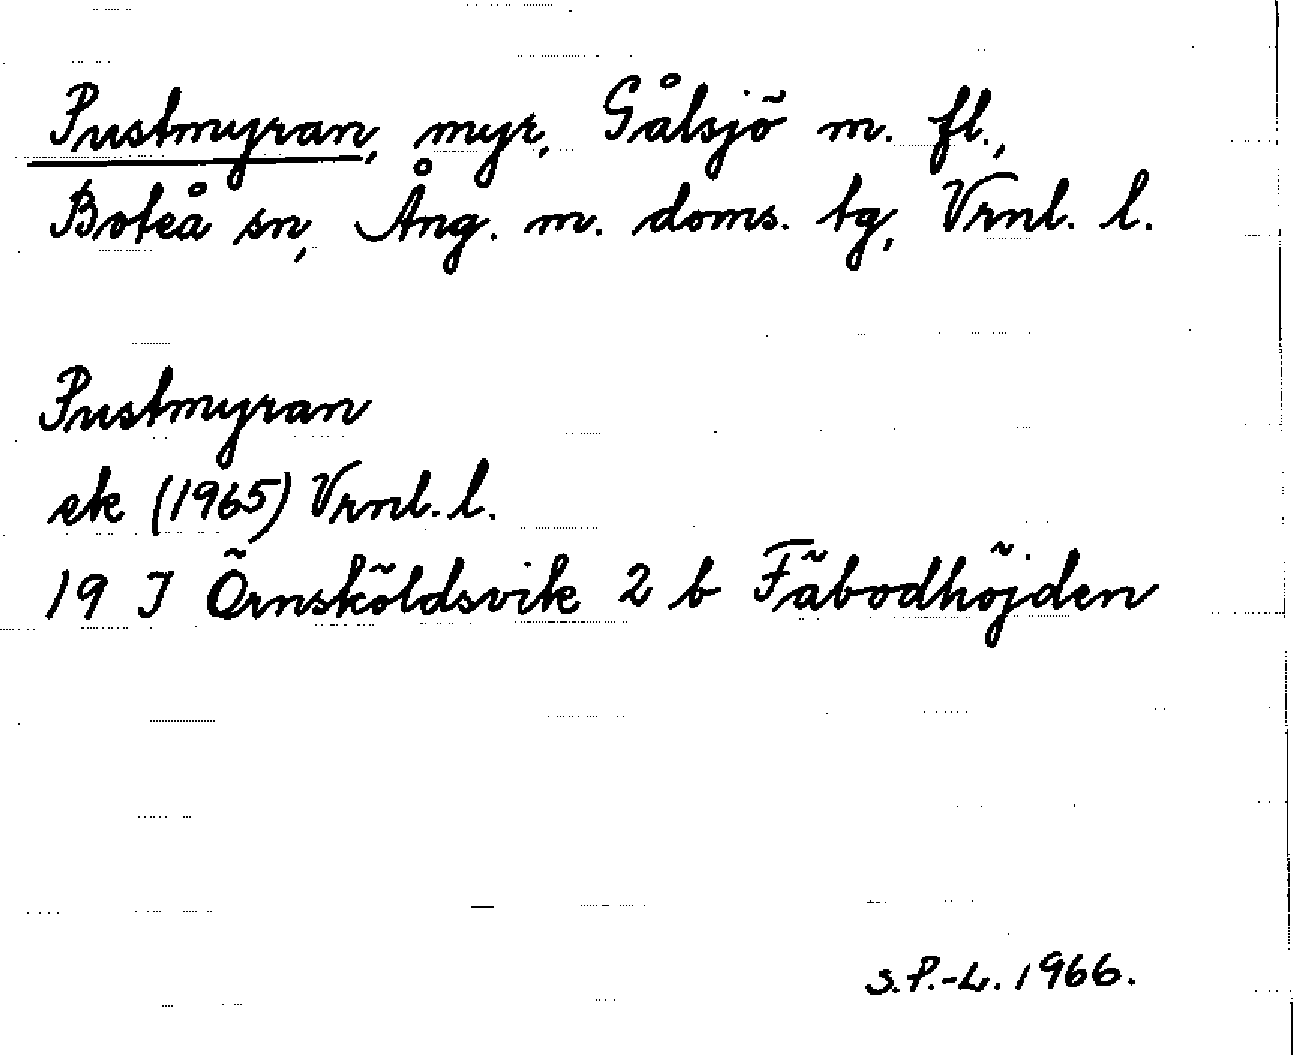 Pustmyran, myr, Gålsjö m. fl.,
Boteå sn, Ång. m. doms. tg, Vrnl. l.
Pustmyran
ek (1965) Vrnl. l.
19 I Örnsköldsvik 2 b Fäbodhöjden
S.P.-L. 1966.